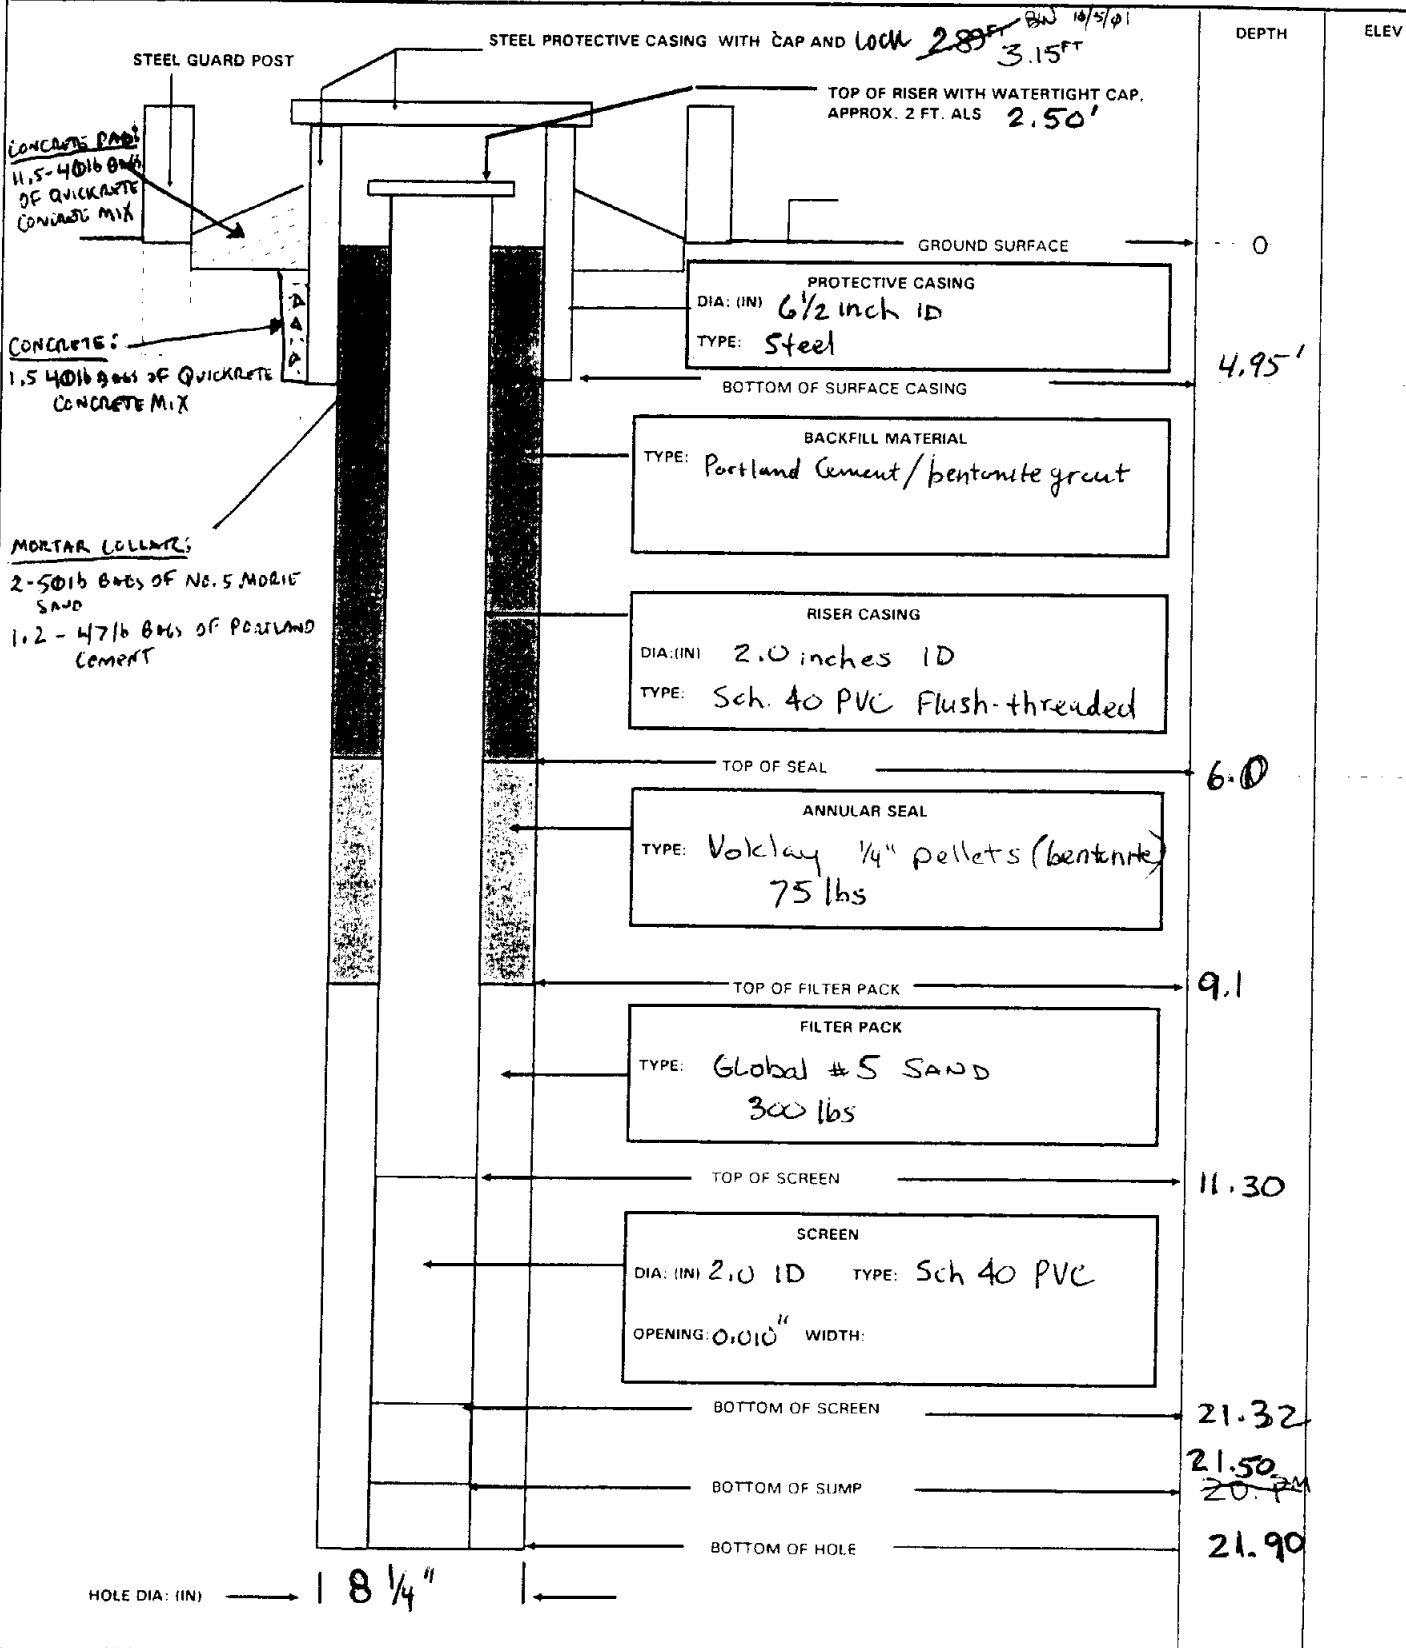 STEEL PROTECTIVE CASING WITH CAP AND LOCK 2.89FT BW 10/5/01
3.15FT
DEPTH
ELEV
STEEL GUARD POST
TOP OF RISER WITH WATERTIGHT CAP.
APPROX. 2 FT. ALS 2.50'
CONCRETE PAD:
11.5-40lb BAGS
OF QUICKRETE
CONCRETE MIX
GROUND SURFACE 0
PROTECTIVE CASING
DIA: (IN) 6 1/2 inch ID
TYPE: Steel
CONCRETE:
1.5 40lb BAGS OF QUICKRETE
CONCRETE MIX
BOTTOM OF SURFACE CASING 4.95'
BACKFILL MATERIAL
TYPE: Portland Cement/bentonite grout
MORTAR COLLAR:
2-50lb BAGS OF NO. 5 MORIE
SAND
1.2 - 47lb BAGS OF PORTLAND
CEMENT
RISER CASING
DIA:(IN) 2.0 inches ID
TYPE: Sch. 40 PVC Flush-threaded
TOP OF SEAL 6.0
ANNULAR SEAL
TYPE: Volclay 1/4" pellets (bentonite)
75 lbs
TOP OF FILTER PACK 9.1
FILTER PACK
TYPE: GLobal #5 SAND
300 lbs
TOP OF SCREEN 11.30
SCREEN
DIA: (IN) 2.0 ID TYPE: Sch 40 PVC
OPENING: 0.010" WIDTH:
BOTTOM OF SCREEN 21.32
21.50
BOTTOM OF SUMP
BOTTOM OF HOLE 21.90
HOLE DIA: (IN) 8 1/4"